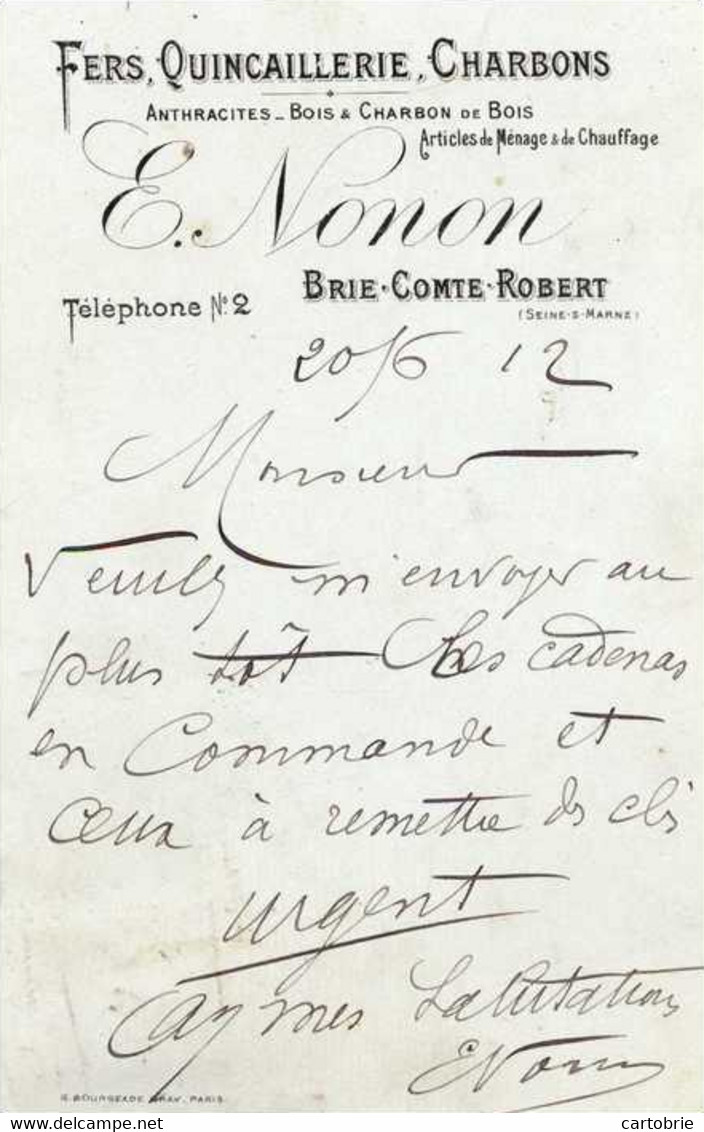 FERS, QUINCAILLERIE, CHARBONS
ANTHRACITES_ BOIS & CHARBON DE BOIS
Articles de Ménage & de Chauffage
E. Nonon
BRIE-COMTE-ROBERT
Téléphone No. 2
(SEINE-S-MARNE)
20/6 12
Monsieur
Veuillez m'envoyer au
plus tôt les cadenas
en commande et
ceux à remettre des clés
urgent
mes Salutations
ENonon
G. BOURGEADE GRAV. PARIS.
cartobrie